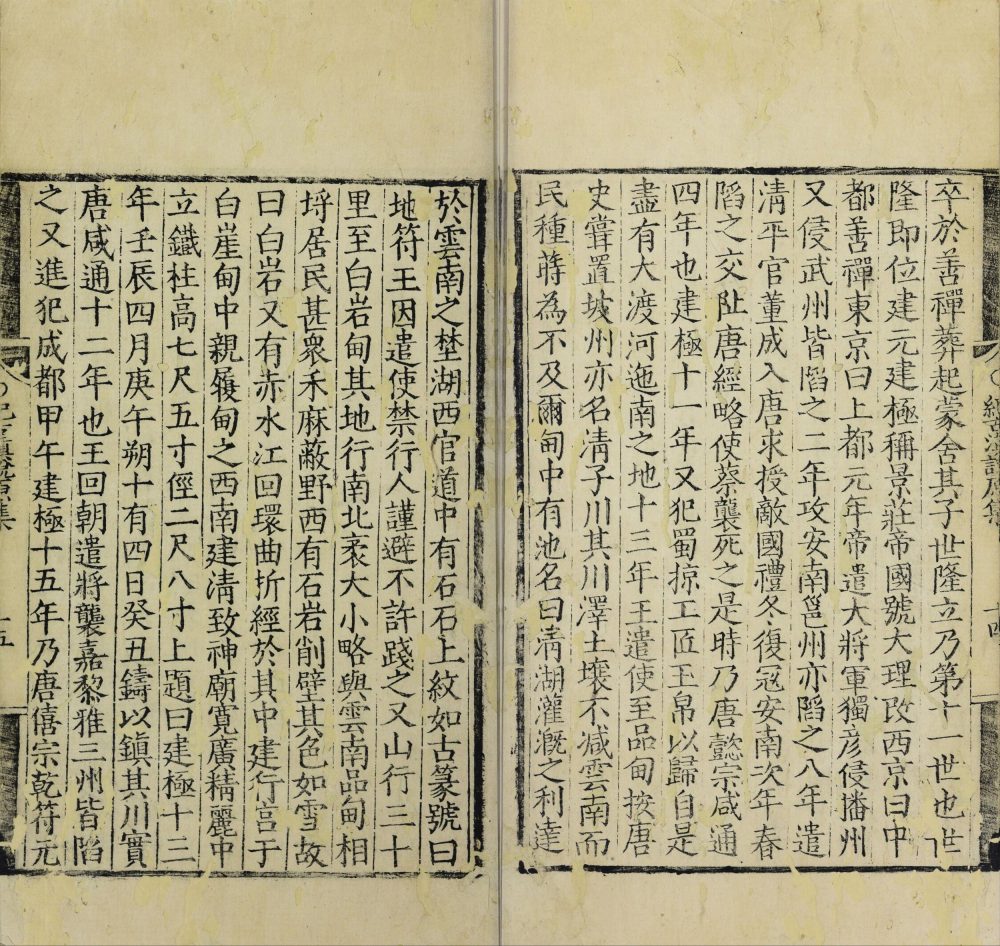 卒於善禪葬起蒙舍其子世隆立乃第十一世也世
隆即位建元建極稱景莊帝國號大理改西京曰中
都善禪東京曰上都元年帝遣大將軍獨彥侵播州
又侵武州皆䧟之二年攻安南邕州亦䧟之八年遣
清平官董成入唐求授敵國禮冬復冦安南次年春
䧟之交阯唐經略使蔡襲死之是時乃唐懿宗咸通
四年也建極十一年又犯蜀掠工匠玉帛以歸自是
盡有大渡河迤南之地十三年王遣使至品甸按唐
史甞置㘱州亦名清子川其川澤土壤不减雲南而
民種蒔為不及爾甸中有池名曰清湖灌溉之利達
於雲南之埜湖西官道中有石石上紋如古篆號曰
地符王因遣使禁行人謹避不許踐之又山行三十
里至白岩甸其地行南北袤大小略與雲南品甸相
埒居民甚衆禾麻蔽野西有石岩削壁其色如雪故
曰白岩又有赤水江回環曲折經於其中建行宫于
白崖甸中親履甸之西南建清致神廟寛廣精麗中
立鐵柱高七尺五寸徑二尺八寸上題曰建極十三
年壬辰四月庚午朔十有四日癸丑鑄以鎮其川實
唐咸通十二年也王回朝遣將襲嘉黎雅三州皆䧟
之又進犯成都甲午建極十五年乃唐僖宗乾符元